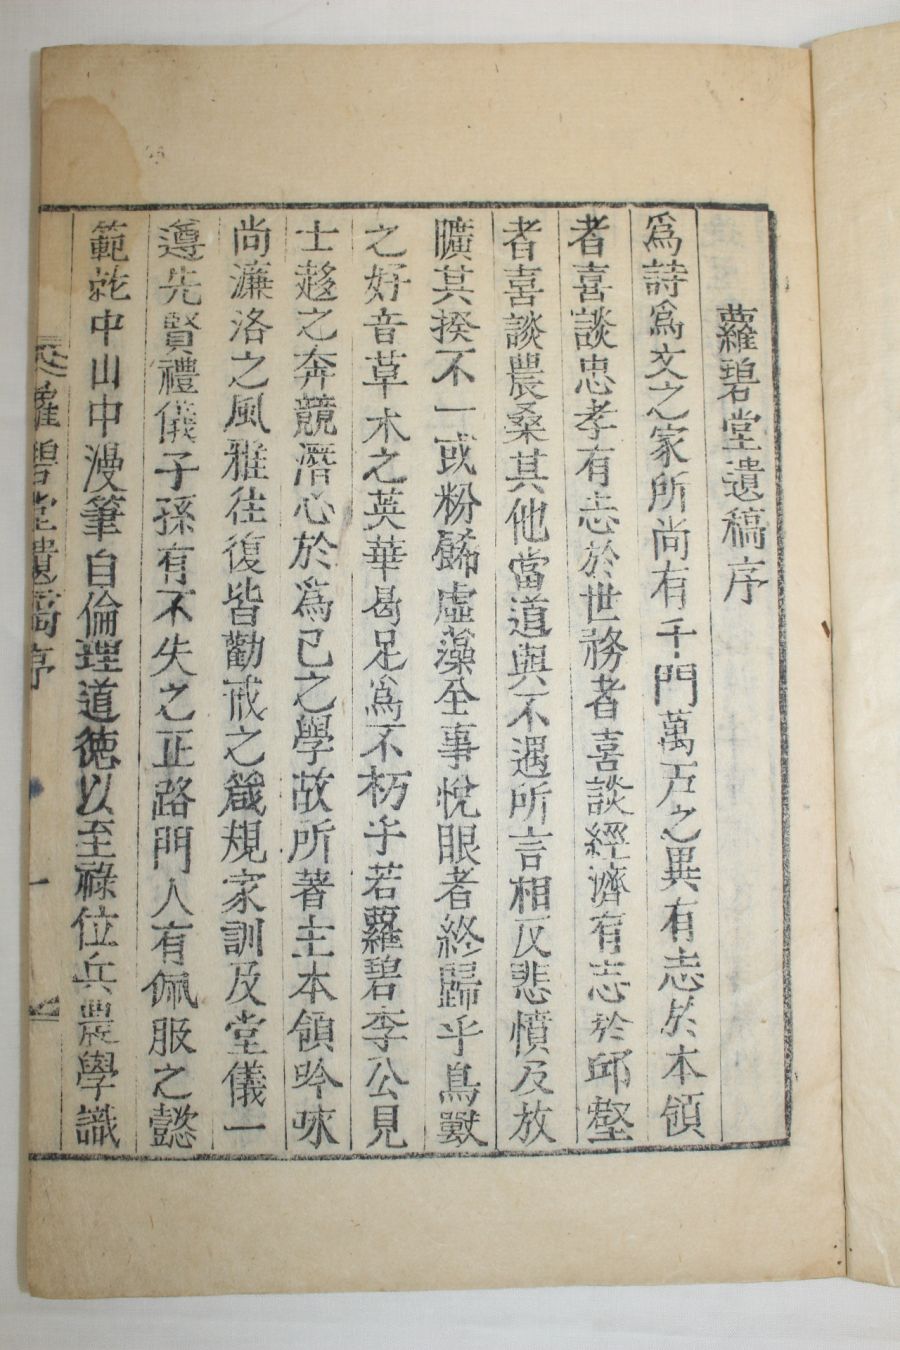 蘿碧堂遺稿序
爲詩爲文之家所尚有千門萬戶之異有志於本領
者喜談忠孝有志於世務者喜談經濟有志於邱壑
者喜談農桑其他當道與不遇所言相反悲憤及放
曠其揆不一或粉餙虛藻全事悅眼者終歸乎鳥獸
之好音草木之英華曷足爲不朽乎若蘿碧李公見
士趍之奔競潛心於爲己之學故所著主本領吟咏
尚濂洛之風雅徃復皆勸戒之箴規家訓及堂儀一
遵先賢禮儀子孫有不失之正路門人有佩服之懿
範乾中山中漫筆自倫理道德以至祿位兵農學識
蘿碧堂遺稿序
一